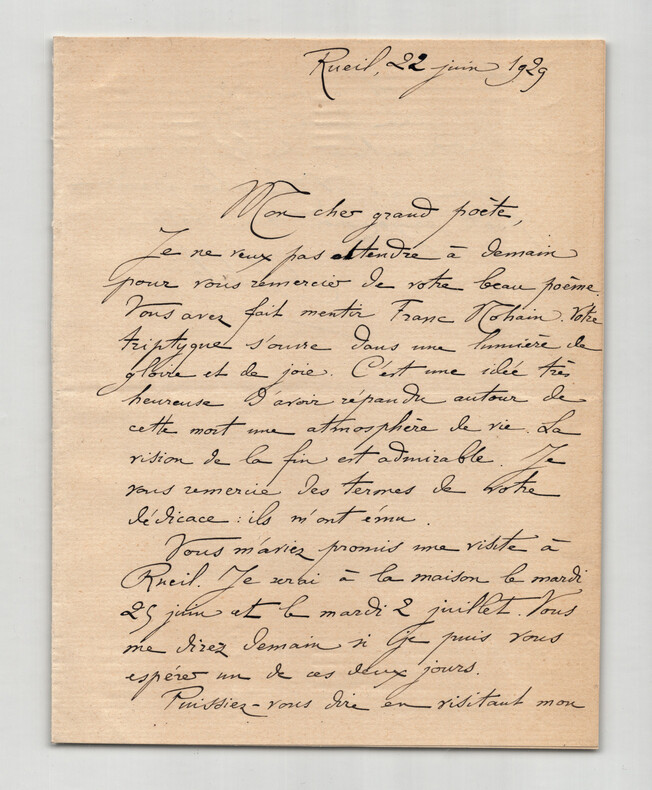 Rueil, 22 juin 1929
Mon cher grand poète,
Je ne veux pas attendre à demain
pour vous remercier de votre beau poème.
Vous avez fait mentir Franc Nohain. Votre
triptyque s'ouvre dans une lumière de
gloire et de joie. C'est une idée très
heureuse d'avoir répandu autour de
cette mort une atmosphère de vie. La
vision de la fin est admirable. Je
vous remercie des termes de votre
dédicace : ils m'ont ému.
Vous m'aviez promis une visite à
Rueil. Je serai à la maison le mardi
25 juin et le mardi 2 juillet. Vous
me direz demain si je puis vous
espérer un de ces deux jours.
Puissiez-vous dire en visitant mon